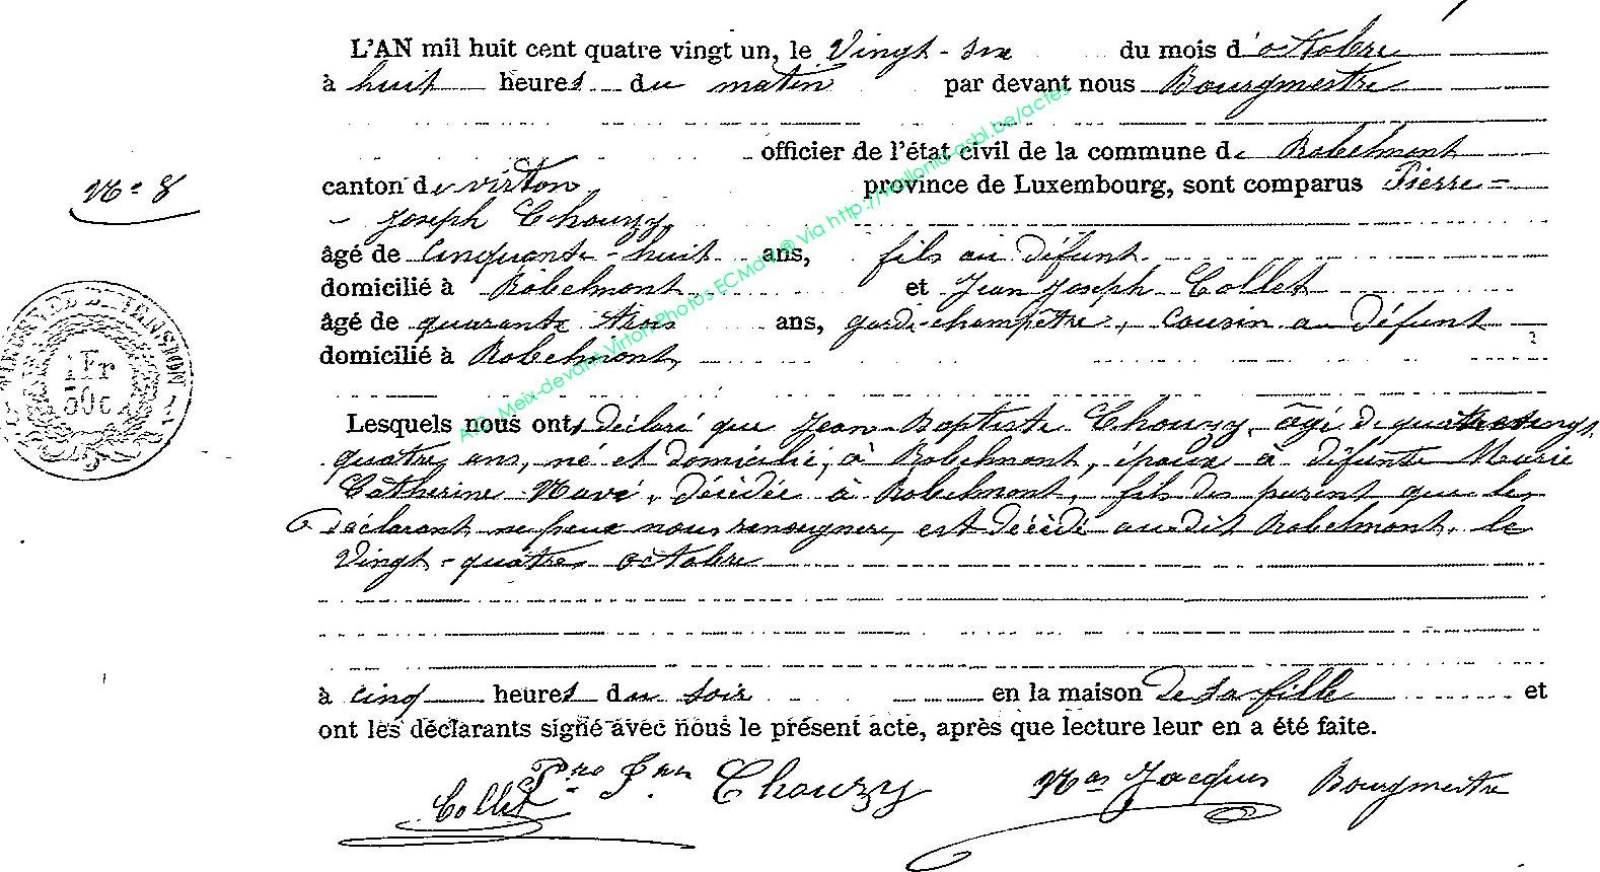 L'AN mil huit cent quatre vingt un, le Vingt-six du mois d'octobre
à huit heures du matin par devant nous Bourgmestre
officier de l'état civil de la commune de Robelmont
N° 8
canton de virton province de Luxembourg, sont comparus Pierre-
Joseph Chouzy,
âgé de Cinquante-huit ans, fils au défunt
domicilié à Robelmont et Jean Joseph Collet
âgé de quarante trois ans, garde-champêtre, cousin au défunt
domicilié à Robelmont,
TIMBRE DE DIMENSION
1 Fr
50 c
Lesquels nous ont déclaré que Jean-Baptiste Chouzy, âgé de quatre vingt
quatre ans, né et domicilié à Robelmont, époux à défunte Marie
Catherine décédée à Robelmont, fils des parent que les
déclarant ne peux nous renseigner, est décédé audit Robelmont, le
Vingt-quatre octobre
à cinq heures du soir en la maison de sa fille et
ont les déclarants signé avec nous le présent acte, après que lecture leur en a été faite.
Collet Chouzy Jacques Bourgmestre
A.C. Meix-devant-Virton Photos ECMdVB® Via http://wallonia-asbl.be/actes